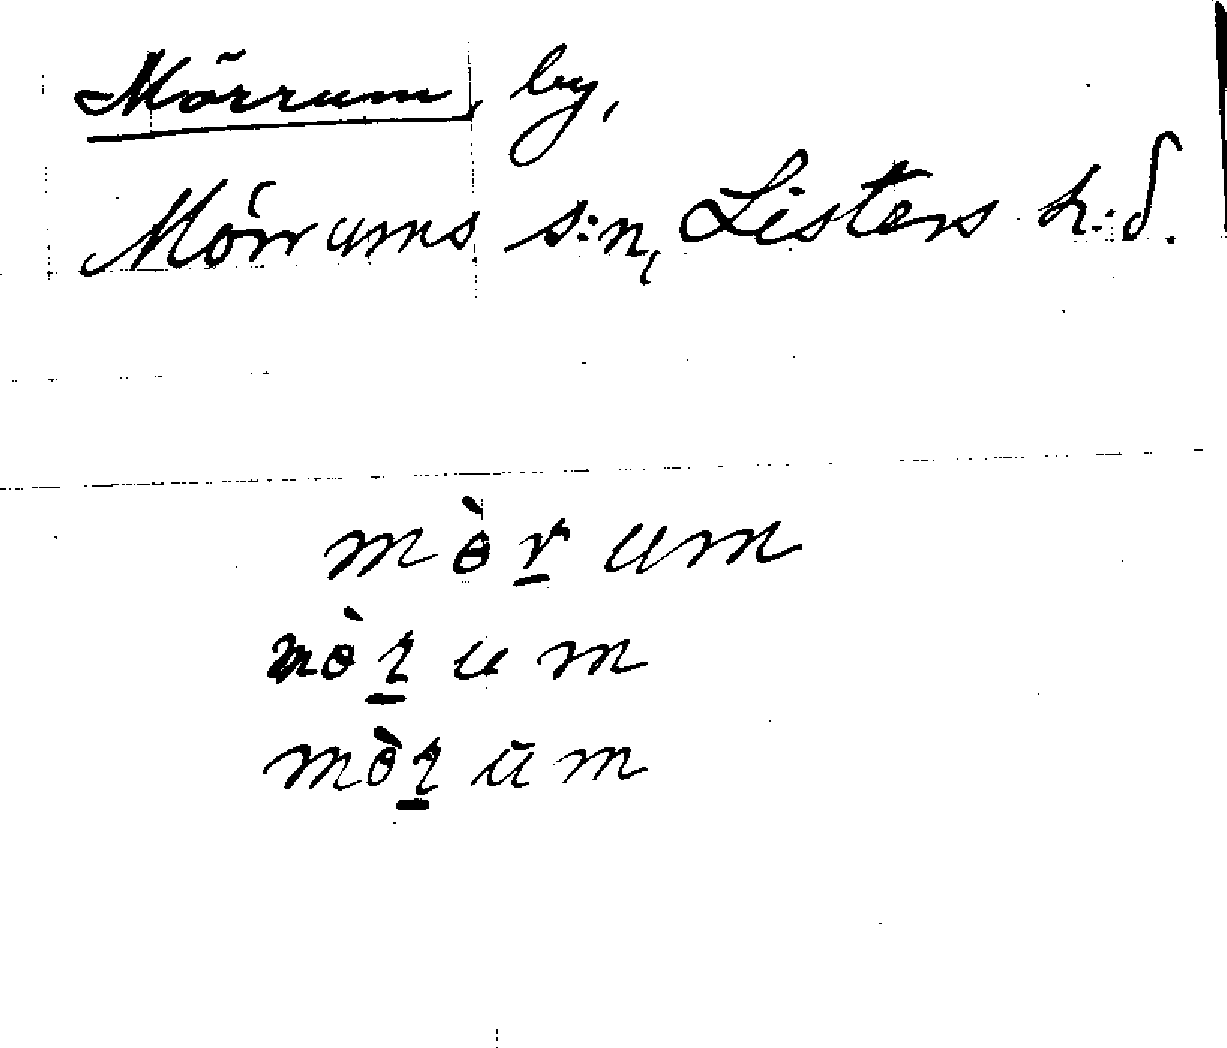 Mörrum, by,
Mörrums s:n, Listers h:d.
mɵ̀r̲um
mɵ̀ɀ̲um
mɵ̀ɀ̲ūm